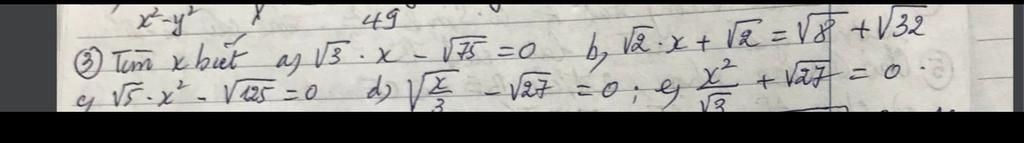 x²-y² 49
③ Tìm x biết a, √3 . x - √75 = 0 b, √2 . x + √2 = √8 + √32
c, √5 . x² - √125 = 0 d) √(x/3) - √27 = 0 ; e, x²/√3 + √27 = 0 .